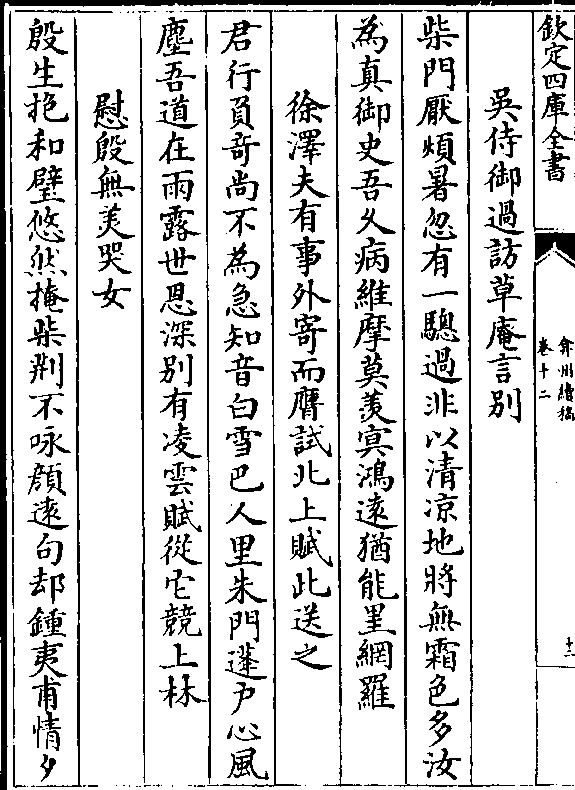 欽定四庫全書
弇州續稿
卷十二
十二
吳侍御過訪草庵言别
柴門厭煩暑忽有一驄過非以清凉地將無霜色多汝
為真御史吾久病維摩莫羨㝠鴻遠猶能罣網羅
徐澤夫有事外寄而膺試北上賦此送之
君行負竒尚不為急知音白雪巴人里朱門蓬户心風
塵吾道在雨露世恩深别有凌雲賦從它競上林
慰殷無羙哭女
殷生抱和璧悠然掩柴荆不咏顔遠句却鍾夷甫情夕